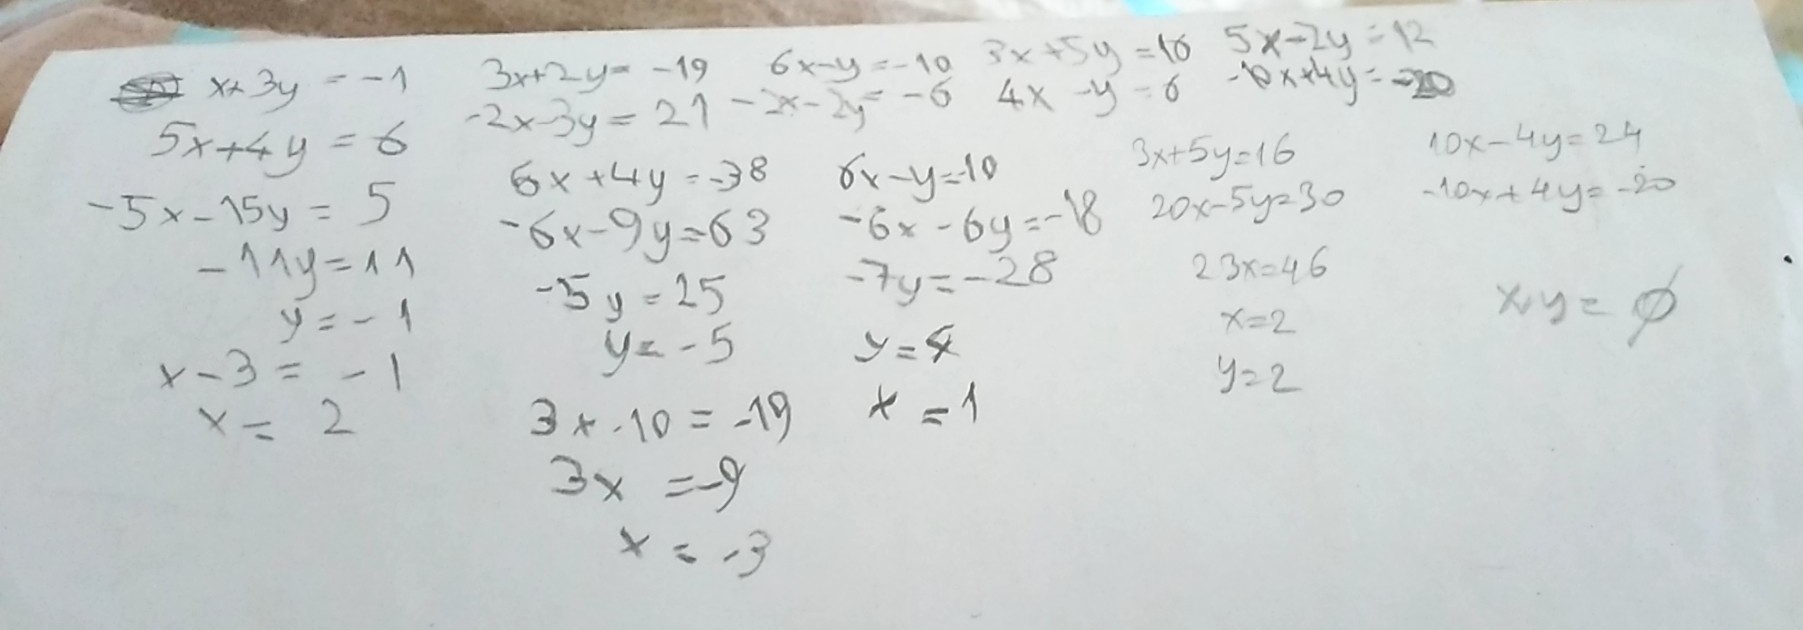 x+3y = -1
5x+4y = 6
-5x-15y = 5
-11y=11
y=-1
x-3= -1
x= 2
3x+2y= -19
-2x-3y= 21
6x+4y=-38
-6x-9y=63
-5y=25
y=-5
3x-10=-19
3x=-9
x=-3
6x-y=-10
-2x-2y=-6
6x-y=-10
-6x-6y=-18
-7y=-28
y=4
x=1
3x+5y=16
4x-y=6
3x+5y=16
20x-5y=30
23x=46
x=2
y=2
5x-2y=12
-10x+4y=-20
10x-4y=24
-10x+4y=-20
x,y= ∅